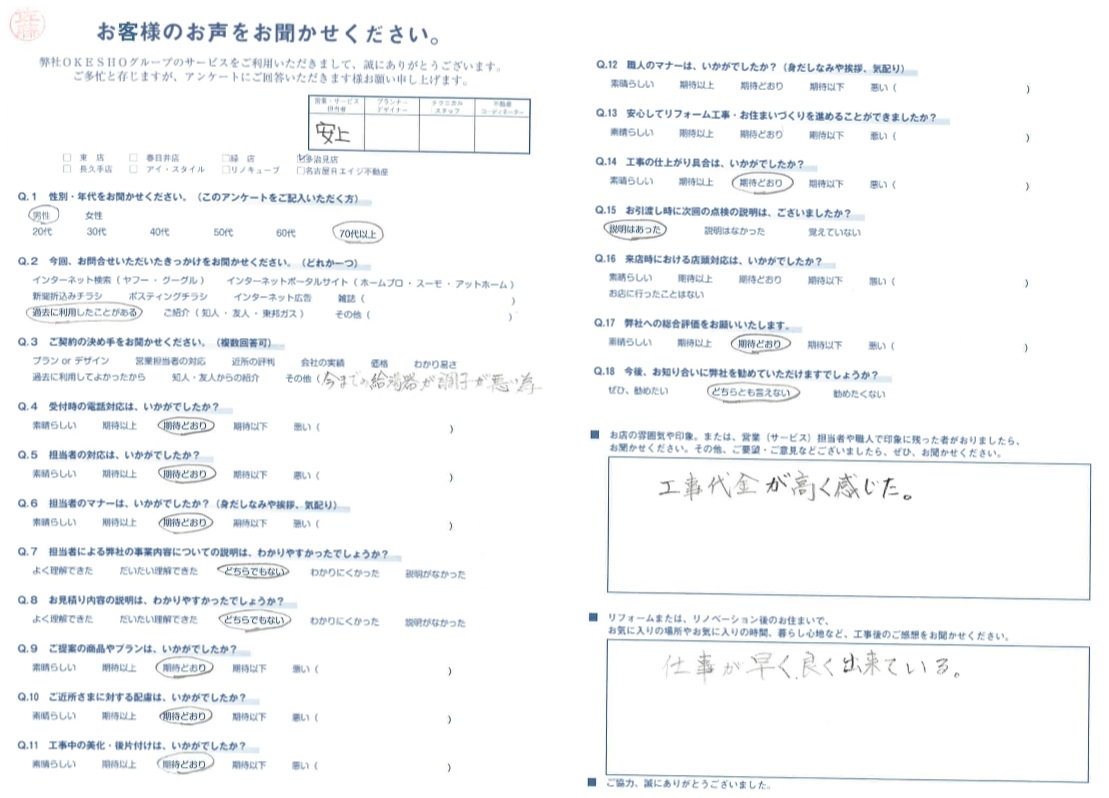 お客様のお声をお聞かせください。
弊社OKESHOグループのサービスをご利用いただきまして、誠にありがとうございます。
ご多忙と存じますが、アンケートにご回答いただきます様お願い申し上げます。
営業・サービス担当者 プランナーデザイナー テクニカルスタッフ 不動産コーディネーター
安上
□ 東 店 □ 春日井店 □緑 店 ☑多治見店
□ 長久手店 □ アイ・スタイル □リノキューブ □名古屋Rエイジ不動産
Q.1 性別・年代をお聞かせください。(このアンケートをご記入いただく方)
男性 女性
20代 30代 40代 50代 60代 70代以上
Q.2 今回、お問合せいただいたきっかけをお聞かせください。(どれか一つ)
インターネット検索(ヤフー・グーグル) インターネットポータルサイト(ホームプロ・スーモ・アットホーム)
新聞折込みチラシ ポスティングチラシ インターネット広告 雑誌( )
過去に利用したことがある ご紹介(知人・友人・東邦ガス) その他( )
Q.3 ご契約の決め手をお聞かせください。(複数回答可)
プラン or デザイン 営業担当者の対応 近所の評判 会社の実績 価格 わかり易さ
過去に利用してよかったから 知人・友人からの紹介 その他(今までの給湯器が調子が悪い為
Q.4 受付時の電話対応は、いかがでしたか?
素晴らしい 期待以上 期待どおり 期待以下 悪い( )
Q.5 担当者の対応は、いかがでしたか?
素晴らしい 期待以上 期待どおり 期待以下 悪い( )
Q.6 担当者のマナーは、いかがでしたか?(身だしなみや挨拶、気配り)
素晴らしい 期待以上 期待どおり 期待以下 悪い( )
Q.7 担当者による弊社の事業内容についての説明は、わかりやすかったでしょうか?
よく理解できた だいたい理解できた どちらでもない わかりにくかった 説明がなかった
Q.8 お見積り内容の説明は、わかりやすかったでしょうか?
よく理解できた だいたい理解できた どちらでもない わかりにくかった 説明がなかった
Q.9 ご提案の商品やプランは、いかがでしたか?
素晴らしい 期待以上 期待どおり 期待以下 悪い( )
Q.10 ご近所さまに対する配慮は、いかがでしたか?
素晴らしい 期待以上 期待どおり 期待以下 悪い( )
Q.11 工事中の美化・後片付けは、いかがでしたか?
素晴らしい 期待以上 期待どおり 期待以下 悪い( )
Q.12 職人のマナーは、いかがでしたか?(身だしなみや挨拶、気配り)
素晴らしい 期待以上 期待どおり 期待以下 悪い( )
Q.13 安心してリフォーム工事・お住まいづくりを進めることができましたか?
素晴らしい 期待以上 期待どおり 期待以下 悪い( )
Q.14 工事の仕上がり具合は、いかがでしたか?
素晴らしい 期待以上 期待どおり 期待以下 悪い( )
Q.15 お引渡し時に次回の点検の説明は、ございましたか?
説明はあった 説明はなかった 覚えていない
Q.16 来店時における店頭対応は、いかがでしたか?
素晴らしい 期待以上 期待どおり 期待以下 悪い( )
お店に行ったことはない
Q.17 弊社への総合評価をお願いいたします。
素晴らしい 期待以上 期待どおり 期待以下 悪い( )
Q.18 今後、お知り合いに弊社を勧めていただけますでしょうか?
ぜひ、勧めたい どちらとも言えない 勧めたくない
■ お店の雰囲気や印象。または、営業(サービス)担当者や職人で印象に残った者がおりましたら、
お聞かせください。その他、ご要望・ご意見などございましたら、ぜひ、お聞かせください。
工事代金が高く感じた。
■ リフォームまたは、リノベーション後のお住まいで、
お気に入りの場所やお気に入りの時間、暮らし心地など、工事後のご感想をお聞かせください。
仕事が早く、良く出来ている。
■ ご協力、誠にありがとうございました。